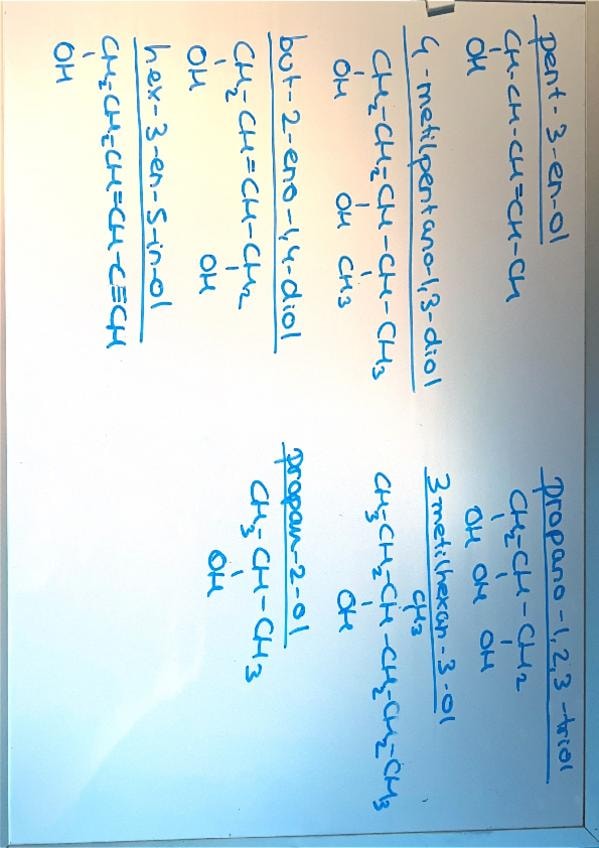 pent-3-en-ol
CH-CH-CH=CH-CH
OH
4-metilpentano-1,3-diol
CH₂-CH₂-CH-CH-CH₃
OH OH CH₃
but-2-eno-1,4-diol
CH₂-CH=CH-CH₂
OH OH
hex-3-en-5-in-ol
CH₂-CH₂-CH=CH-C≡CH
OH
propano-1,2,3-triol
CH₂-CH-CH₂
OH OH OH
3metilhexan-3-ol
CH₃
CH₃-CH₂-CH-CH₂-CH₂-CH₃
OH
propan-2-ol
CH₃-CH-CH₃
OH